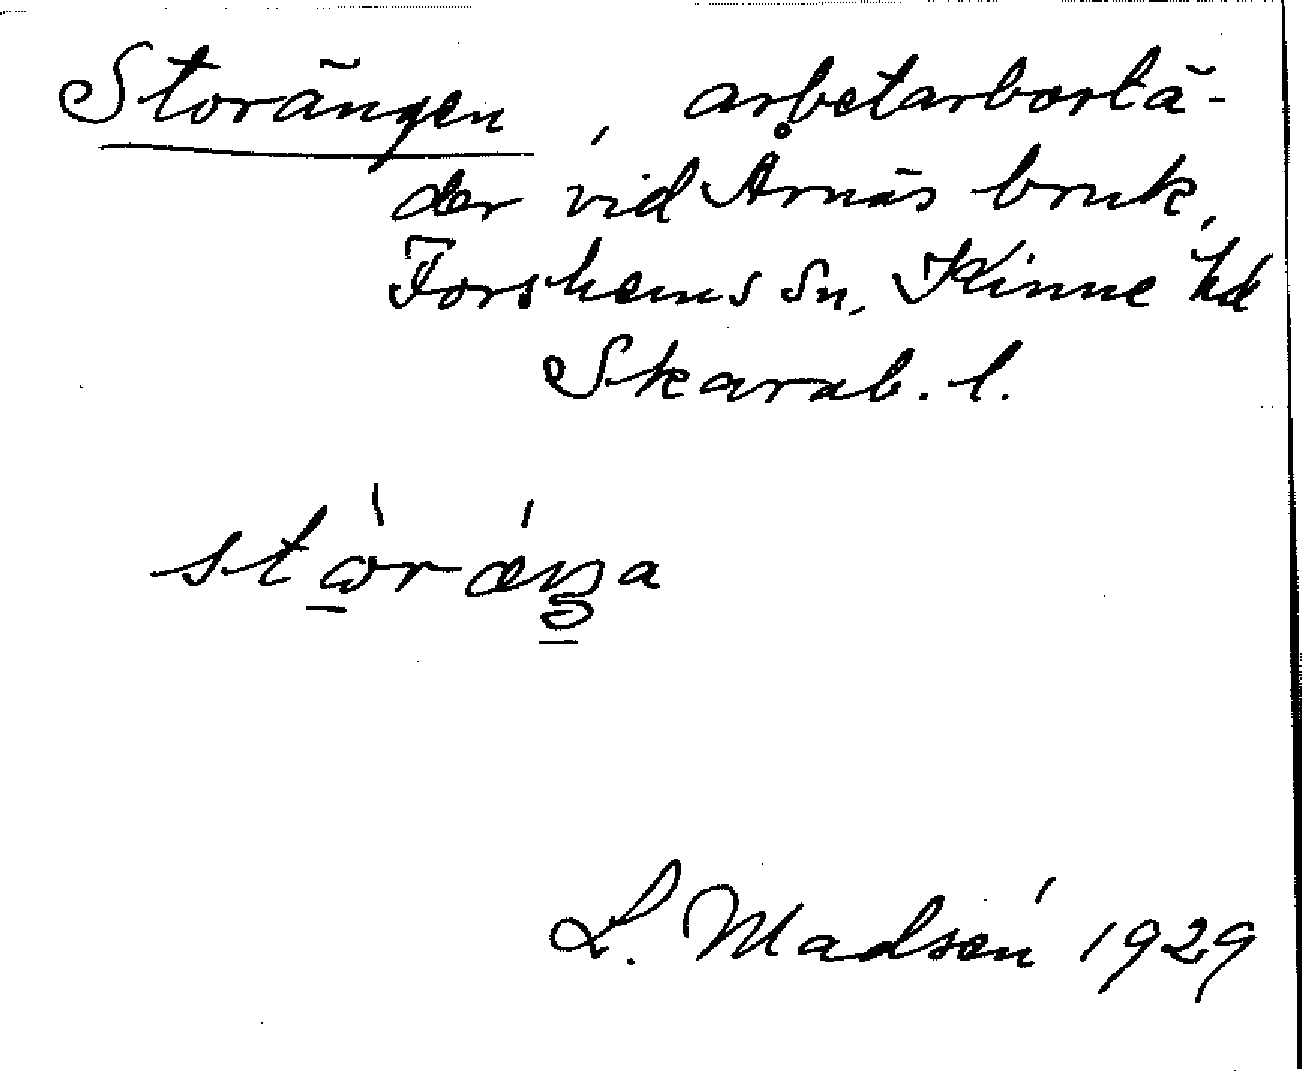 Storängen, arbetarbostä-
der vid Årnäs bruk,
Forshems sn, Kinne hd
Skarab. l.
stὼ̲rǽŋ̲a
L. Madsén 1929